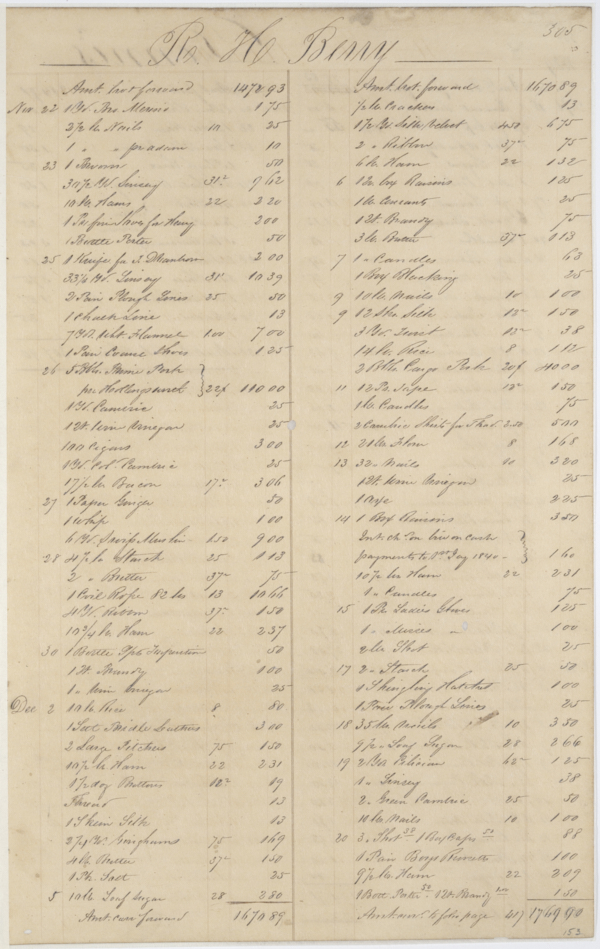 305
R. H. Berry
Amt. brot forward 1478 93
Nov 22 1 Yd. 1 75
2 1/2 lbs Nails 10 25
1 " " 10
23 1 50
30 1/2 Yds Linsey 31 2 9 62
10 lbs Ham 22 2 20
1 Pr fine Shoes for Henry 2 00
1 Bottle Porter 50
25 1 Knife for 2 00
33 1/4 Yds Linsey 31 2 10 39
2 Pair Plough Lines 25 50
1 Chalk Line 13
7 Yds Flannel 1 00 7 00
1 Pair Coarse Shoes 1 25
26 5 Bbls Prime Pork
per 22 110 00
1 Yd. Cambric 25
1 Qt. Wine Vinegar 25
100 Cigars 3 00
1 Yd. Col. Cambric 25
17 1/2 lbs Bacon 17 2 3 06
27 1 Paper Ginger 50
1 Whip 1 00
6 Yds Swiss Muslin 1 50 9 00
28 4 1/2 lbs Starch 25 1 13
2 " Butter 37 2 75
1 Coil Rope 82 lbs 13 10 66
4 Yds Ribbon 37 2 1 50
10 3/4 lbs Ham 22 2 37
30 1 Bottle 50
1 Qt. Brandy 1 00
1 " Wine Vinegar 25
Dec 2 10 lbs Rice 8 80
1 Sett 3 00
2 Large Pitchers 75 1 50
10 1/2 lbs Ham 22 2 31
1 1/2 doz Buttons 12 2 19
Thread 13
1 Skein Silk 13
2 1/4 Yds Ginghams 75 1 69
4 lbs Butter 37 2 1 50
1 Pk. Salt 25
5 10 lbs Loaf Sugar 28 2 80
Amt. carr forward 1670 89
Amt. brot. forward 1670 89
1/2 lb Crackers 13
1 1/2 Yds Silk Velvet 4 50 6 75
2 " Ribbon 37 2 75
6 lbs Ham 22 1 32
6 1/2 box Raisins 1 25
1 lb Currants 25
1 Qt. Brandy 75
3 lbs Butter 37 2 1 13
7 1 " Candles 63
1 Box Blacking 25
9 10 lbs Nails 10 1 00
9 12 Silk 12 2 1 50
3 Yds 12 2 38
14 lbs Rice 8 1 12
2 Bbls Cargo Pork 20 40 00
11 12 Ps. Tape 12 2 1 50
1 lb Candles 75
2 Cambric 2 50 5 00
12 21 lbs 8 1 68
13 32 " Nails 10 3 20
1 Qt. Wine Vinegar 25
1 Axe 2 25
14 1 Box Raisins 3 50
Int. on cash
payments to 1st Jany 1840 1 60
10 1/2 lbs Ham 22 2 31
1 " Candles 75
15 1 Pr Ladies Gloves 1 25
1 " Misses " 1 00
2 lbs Shot 25
17 2 " Starch 25 50
1 Shingling Hatchet 1 00
1 Pair Plough Lines 25
18 35 lbs Nails 10 3 50
9 1/2 " Loaf Sugar 28 2 66
19 2 Yds 62 2 1 25
1 " Linsey 38
2 " Green Cambric 25 50
10 lbs Nails 10 1 00
20 3 " Shot 38 1 Box Caps 50 88
1 Pair Boys 1 00
9 1/2 lbs Ham 22 2 09
1 Bott. Porter 50 1 Qt. Brandy 1.00 1 50
Amt. carr. to folio page 417 1769 90
153